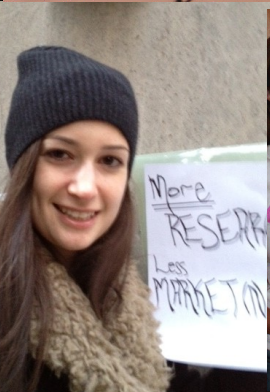 More
RESEAR
Less
MARKETIN